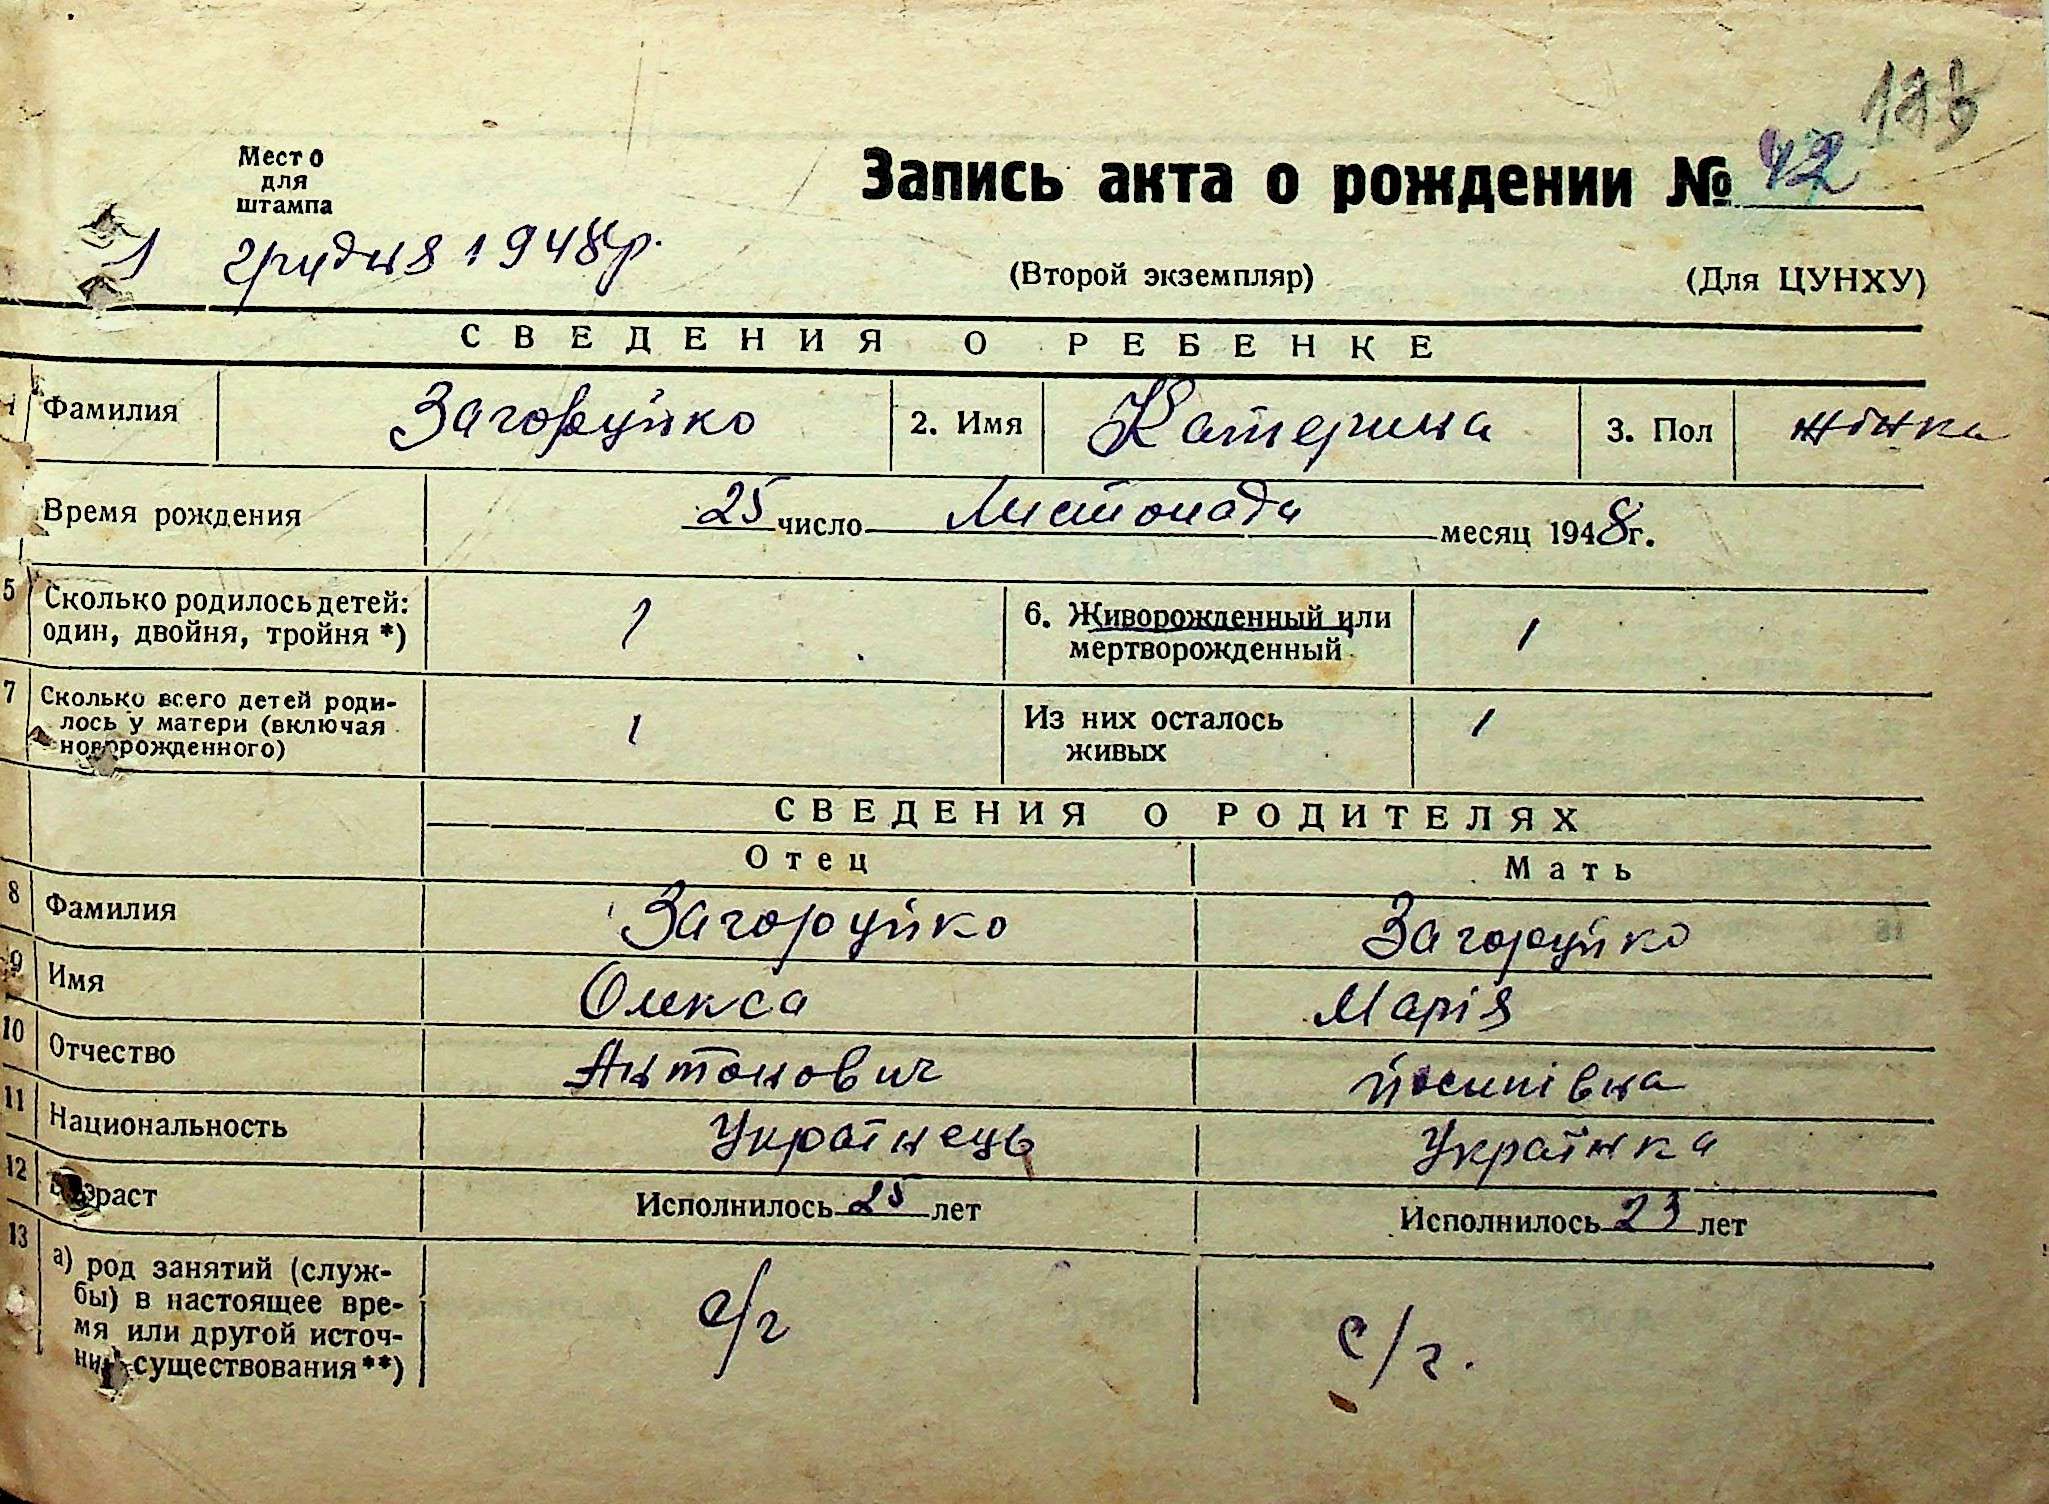 Место
для
штампа
Запись акта о рождении № 42
1 грудня 1948 р.
(Второй экземпляр) (Для ЦУНХУ)
СВЕДЕНИЯ О РЕБЕНКЕ
1 Фамилия Загоруйко 2. Имя Катерина 3. Пол жінка
Время рождения 25 число Листопада месяц 1948 г.
5 Сколько родилось детей: 1 6. Живорожденный или 1
один, двойня, тройня *) мертворожденный
7 Сколько всего детей роди- 1 Из них осталось 1
лось у матери (включая живых
новорожденного)
СВЕДЕНИЯ О РОДИТЕЛЯХ
Отец Мать
8 Фамилия Загоруйко Загоруйко
9 Имя Олекса Марія
10 Отчество Антонович Йосипівна
11 Национальность Українець Українка
12 Возраст Исполнилось 25 лет Исполнилось 23 лет
13 а) род занятий (служ- с/г с/г.
бы) в настоящее вре-
мя или другой источ-
ник существования **)